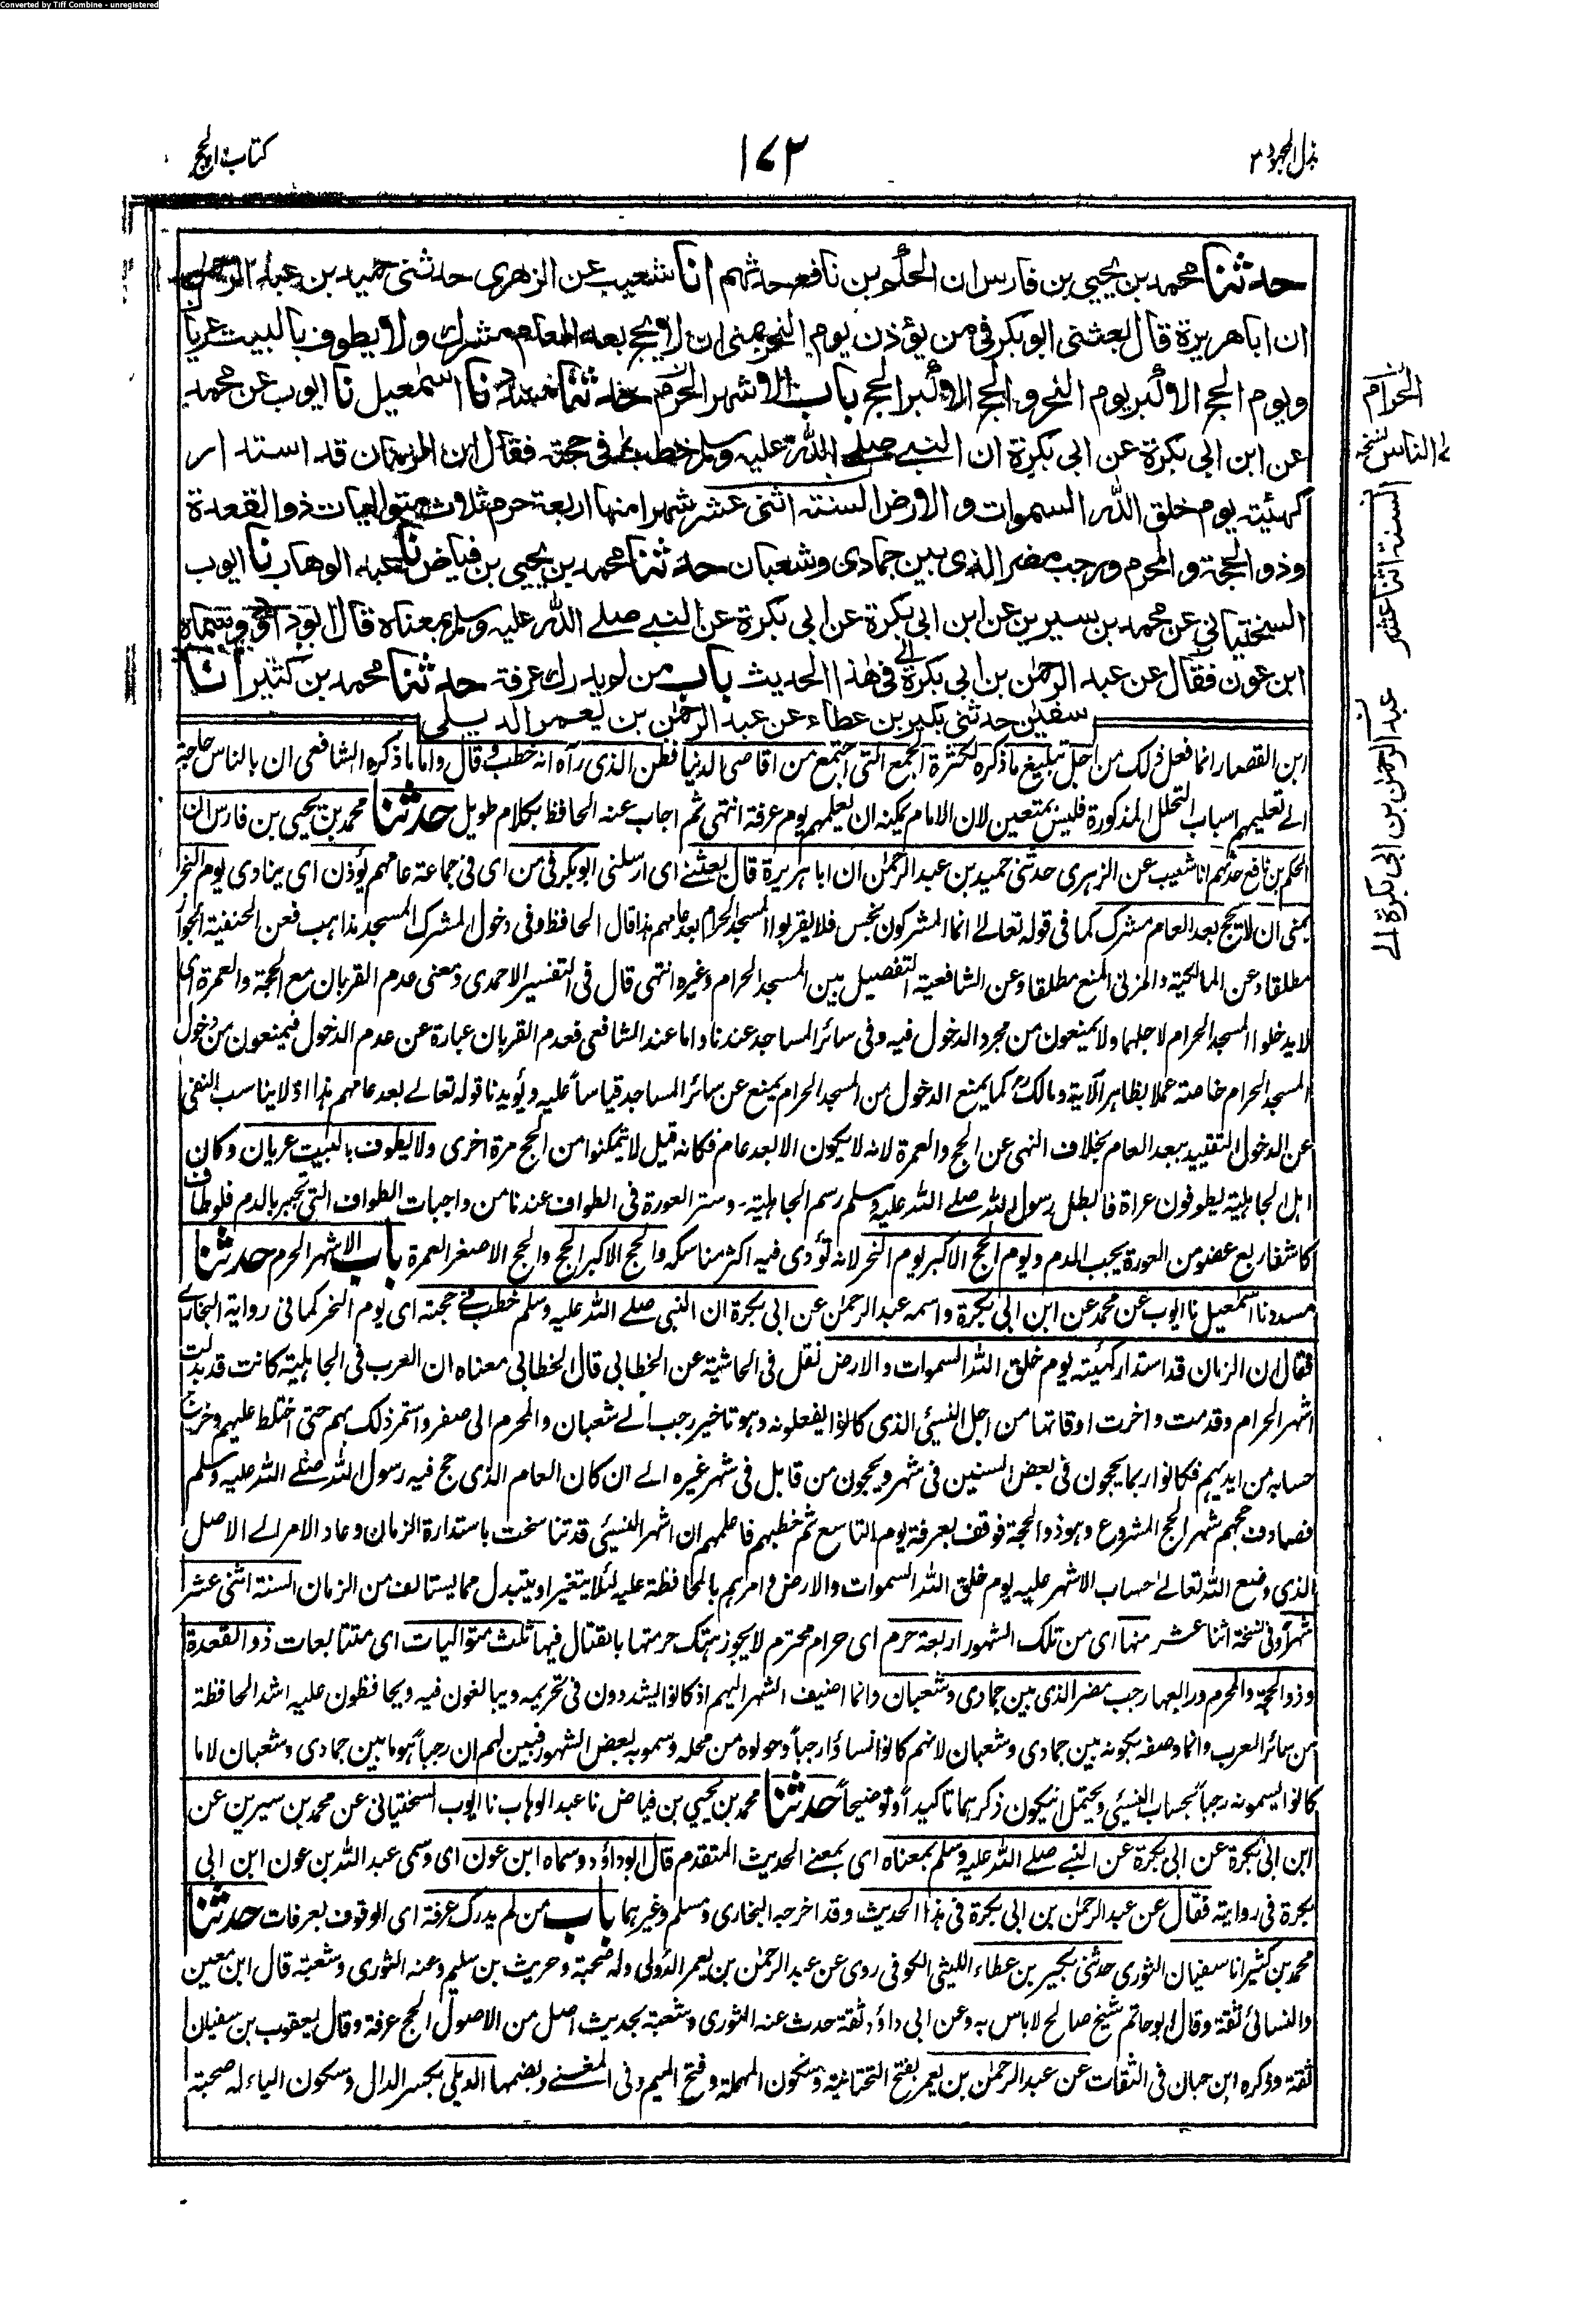 Converted by Tiff Combine - unregistered
بذل المجهود ٣
١٧٣
كتاب الحج
حدثنا محمد بن يحيى بن فارس ان الحكم بن نافع حدثهم انا شعيب عن الزهرى حدثنى حميد بن عبد الرحمن
ان ابا هريرة قال بعثنى ابو بكر فى من يؤذن يوم النحر بمنى ان لا يحج بعد العام مشرك ولا يطوف بالبيت عريان
ويوم الحج الاكبر يوم النحر والحج الاكبر الحج باب الاشهر الحرم حدثنا مسدد نا اسمعيل نا ايوب عن محمد
عن ابن ابى بكرة عن ابى بكرة ان النبى صلى الله عليه وسلم خطب فى حجته فقال ان الزمان قد استدار
كهئيته يوم خلق الله السموات والارض السنة اثنى عشر شهرا منها اربعة حرم ثلاث متواليات ذو القعدة
وذو الحجة والمحرم ورجب مضر الذى بين جمادى وشعبان حدثنا محمد بن يحيى بن فياض نا عبد الوهاب نا ايوب
السختيانى عن محمد بن سيرين عن ابن ابى بكرة عن ابى بكرة عن النبى صلى الله عليه وسلم بمعناه قال ابو داؤد وسماه
ابن عون فقال عن عبد الرحمن بن ابى بكرة فى هذا الحديث باب من لم يدرك عرفة حدثنا محمد بن كثير انا
سفين حدثنى بكير بن عطاء عن عبد الرحمن بن يعمر الديلى
الحرام
الناس نسخه
السنة اثنا عشر
عبد الرحمن بن ابى بكرة
ابن القصار انما فعل ذلك من اجل تبليغ ما ذكره لكثرة الجمع التى اجتمع من اقاصى الدنيا فظن الذى رآه انه خطب وقال واما ما ذكره الشافعى ان بالناس حاجة
الى تعليمهم اسباب التحلل المذكورة فليس بمتعين لان الامام يمكنه ان يعلمهم يوم عرفة انتهى ثم اجاب عنه الحافظ بكلام طويل حدثنا محمد بن يحيى بن فارس ان
الحكم بن نافع حدثهم انا شعيب عن الزهرى حدثنى حميد بن عبد الرحمن ان ابا هريرة قال بعثنى اى ارسلنى ابو بكر فى من اى فى جماعة عامهم يؤذن اى ينادى يوم النحر
بمنى ان لا يحج بعد العام مشرك كما فى قوله تعالى انما المشركون نجس فلا يقربوا المسجد الحرام بعد عامهم هذا قال الحافظ وفى دخول المشرك المسجد مذاهب فعن الحنفية الجواز
مطلقا وعن المالكية والمزنى المنع مطلقا وعن الشافعية التفصيل بين المسجد الحرام وغيره انتهى قال فى التفسير الاحمدى ومعنى عدم القربان مع الحجة والعمرة اى
لا يدخلوا المسجد الحرام لاجلهما ولا يمنعون من مجرد الدخول فيه وفى سائر المساجد عندنا واما عند الشافعى فعدم القربان عبارة عن عدم الدخول فيمنعون من دخول
المسجد الحرام خاصة عملا بظاهر الآية ومالك كما يمنع الدخول من المسجد الحرام يمنع عن سائر المساجد قياسا عليه ويؤيدنا قوله تعالى بعد عامهم هذا اذ لا يناسب النفى
عن الدخول التقييد ببعد العام بخلاف النهى عن الحج والعمرة لانه لا يكون الا بعد عام فكانه قيل لا يتمكنوا من الحج مرة اخرى ولا يطوف بالبيت عريان وكان
اهل الجاهلية يطوفون عراة فابطل رسول الله صلى الله عليه وسلم رسم الجاهلية - وستر العورة فى الطواف عندنا من واجبات الطواف التى تجبر بالدم فلو طاف
كاشفا ربع عضو من العورة يجب الدم ويوم الحج الاكبر يوم النحر لانه تؤدى فيه اكثر مناسكه والحج الاكبر الحج والحج الاصغر العمرة باب الاشهر الحرم حدثنا
مسدد نا اسمعيل نا ايوب عن محمد عن ابن ابى بكرة واسمه عبد الرحمن عن ابى بكرة ان النبى صلى الله عليه وسلم خطب فى حجته اى يوم النحر كما فى رواية البخارى
فقال ان الزمان قد استدار كهئيته يوم خلق الله السموات والارض نقل فى الحاشية عن الخطابى قال الخطابى معناه ان العرب فى الجاهلية كانت قد بدلت
اشهر الحرام وقدمت واخرت اوقاتها من اجل النسئى الذى كانوا يفعلونه وهو تاخير رجب الى شعبان والمحرم الى صفر واستمر ذلك بهم حتى اختلط عليهم وخرج
حسابه من ايديهم فكانوا ربما يحجون فى بعض السنين فى شهر ويحجون من قابل فى شهر غيره الى ان كان العام الذى حج فيه رسول الله صلى الله عليه وسلم
فصادف حجهم شهر الحج المشروع وهو ذو الحجة فوقف بعرفة يوم التاسع ثم خطبهم فاعلمهم ان اشهر النسئى قد تناسخت باستدارة الزمان وعاد الامر الى الاصل
الذى وضع الله تعالى حساب الاشهر عليه يوم خلق الله السموات والارض وامرهم بالمحافظة عليه لئلا يتغير او يتبدل مما يستانف من الزمان السنة اثنى عشر
شهرا وفى نسخة اثنا عشر منها اى من تلك الشهور اربعة حرم اى حرام محترم لا يجوز هتك حرمتها بالقتال فيها ثلث متواليات اى متتابعات ذو القعدة
وذو الحجة والمحرم ورابعها رجب مضر الذى بين جمادى وشعبان وانما اضيف الشهر اليهم اذ كانوا يشددون فى تحريمه ويبالغون فيه ويحافظون عليه اشد المحافظة
من سائر العرب وانما وصفه بكونه بين جمادى وشعبان لانهم كانوا انساؤا رجبا وحولوه من محله وسموه بعض الشهور فبين لهم ان رجبا هو ما بين جمادى وشعبان لا ما
كانوا يسمونه رجبا بحساب النسئى ويحتمل ان يكون ذكرهما تاكيدا او توضيحا حدثنا محمد بن يحيى بن فياض نا عبد الوهاب نا ايوب السختيانى عن محمد بن سيرين عن
ابن ابى بكرة عن ابى بكرة عن النبى صلى الله عليه وسلم بمعناه اى بمعنى الحديث المتقدم قال ابو داؤد وسماه ابن عون اى وسمى عبد الله بن عون ابن ابى
بكرة فى روايته فقال عن عبد الرحمن بن ابى بكرة فى هذا الحديث وقد اخرجه البخارى ومسلم وغيرهما باب من لم يدرك عرفة اى الوقوف بعرفات حدثنا
محمد بن كثير انا سفيان الثورى حدثنى بكير بن عطاء الليثى الكوفى روى عن عبد الرحمن بن يعمر الدؤلى وله صحبة وحريث بن سليم وعنه الثورى وشعبة قال ابن معين
والنسائى ثقة وقال ابو حاتم شيخ صالح لا باس به وعن ابى داؤد ثقة حدث عنه الثورى وشعبة بحديث اصل من الاصول الحج عرفة وقال يعقوب بن سفيان
ثقة وذكره ابن حبان فى الثقات عن عبد الرحمن بن يعمر بفتح التحتانية وسكون المهملة وفتح الميم وفى المغنى وبضمها الديلى بكسر الدال وسكون الياء له صحبة